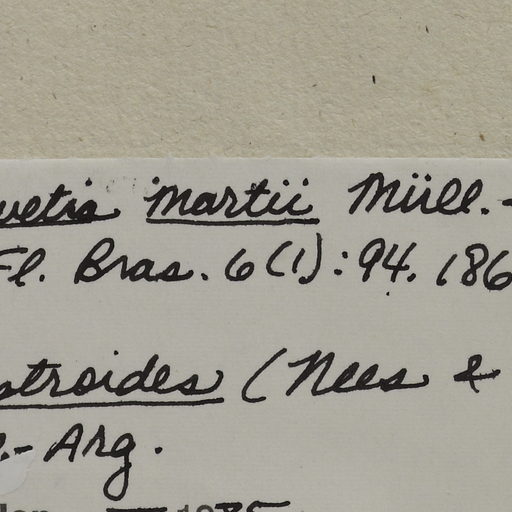 vetia martii Müll.-
Fl. Bras. 6(1):94. 186
stroides (Nees &
.-Arg.
1985